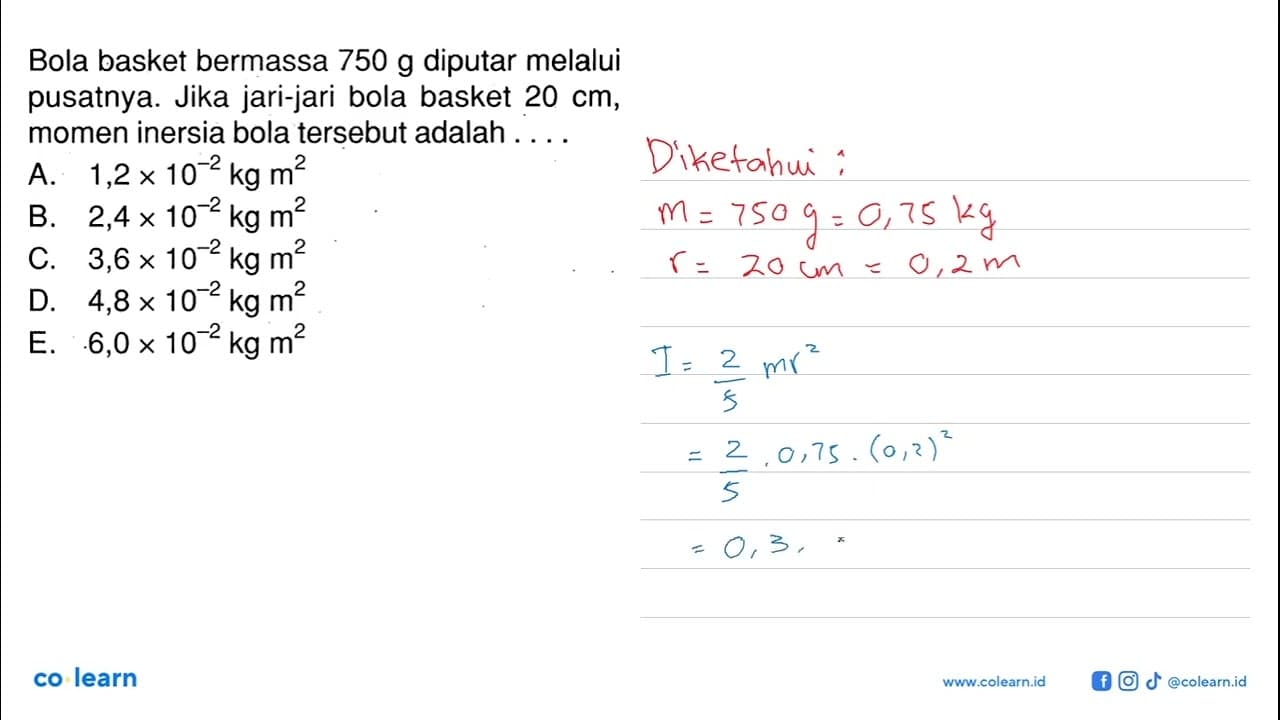 Bola basket bermassa 750 g diputar melalui
pusatnya. Jika jari-jari bola basket 20 cm,
momen inersia bola tersebut adalah . . . .
A. 1,2 × 10⁻² kg m²
B. 2,4 × 10⁻² kg m²
C. 3,6 × 10⁻² kg m²
D. 4,8 × 10⁻² kg m²
E. 6,0 × 10⁻² kg m²
Diketahui :
m = 750 g = 0,75 kg
r = 20 cm = 0,2 m
I = 2/5 mr²
= 2/5 . 0,75 . (0,2)²
= 0,3 .
co learn
www.colearn.id
@colearn.id